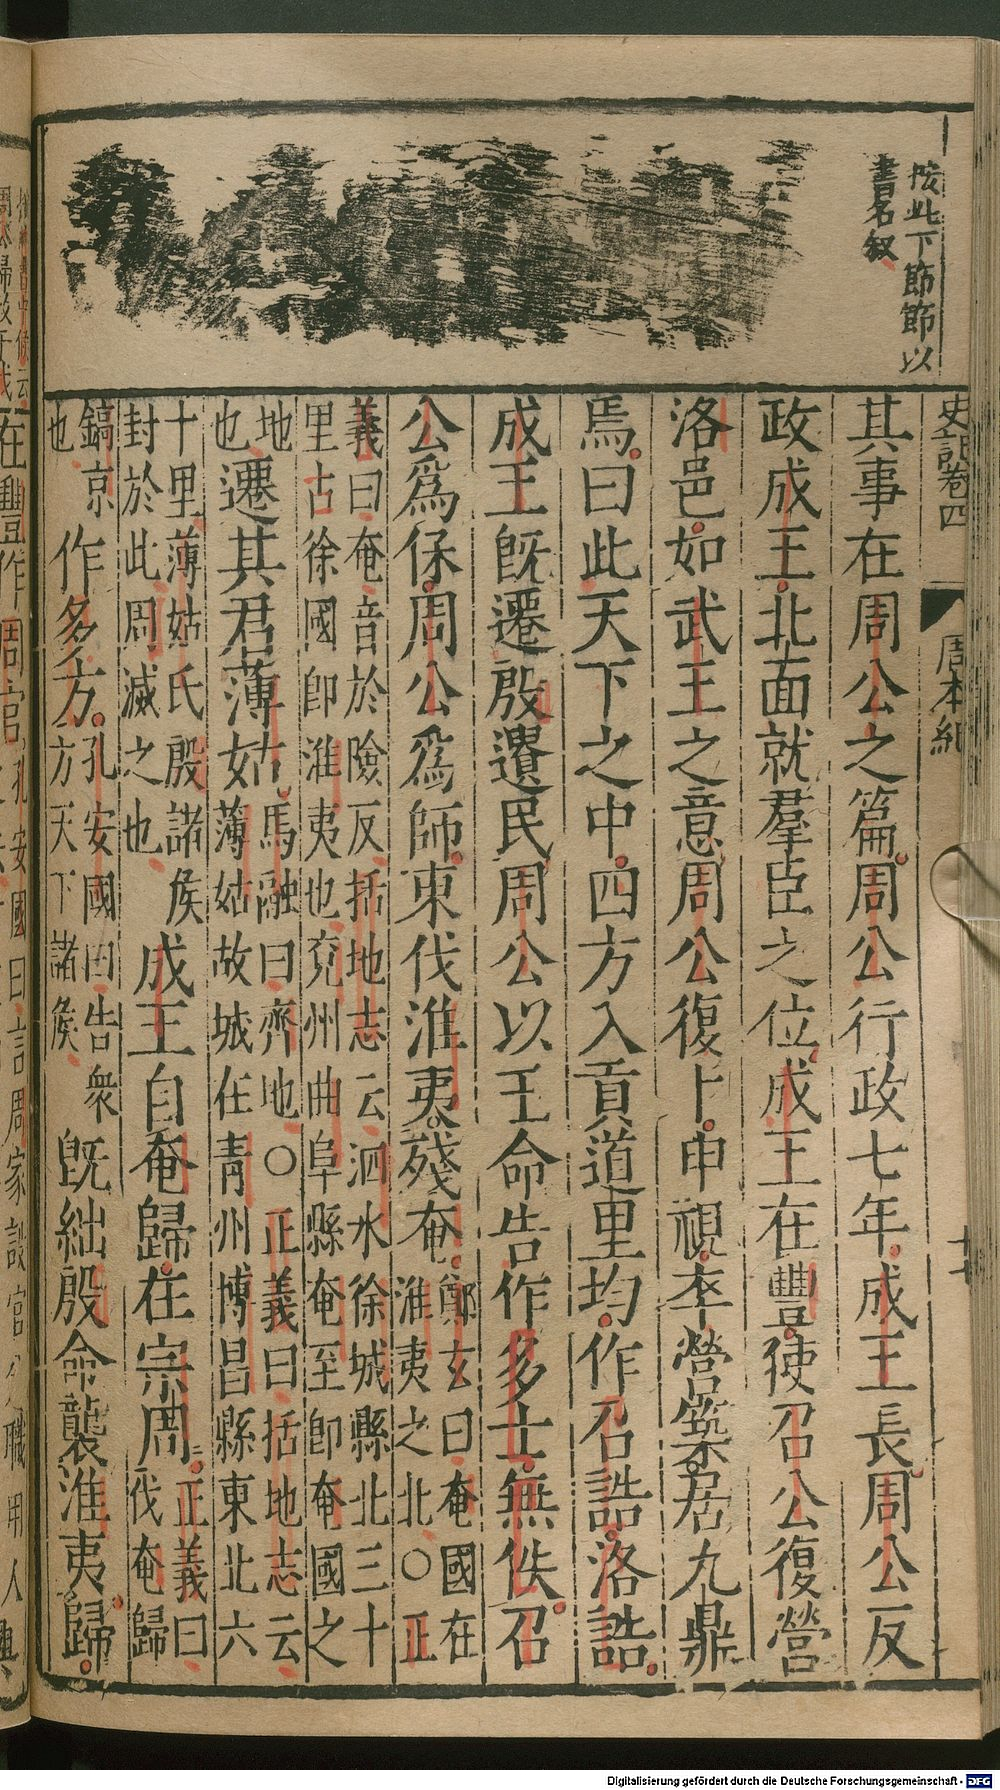 按此下節節以
書名叙
史記卷四
周本紀
十七
其事在周公之篇周公行政七年成王長周公反
政成王北面就羣臣之位成王在豐使召公復營
洛邑如武王之意周公復卜申視卒營築居九鼎
焉曰此天下之中四方入貢道里均作召誥洛誥
成王旣遷殷遺民周公以王命告作多士無佚召
公爲保周公爲師東伐淮夷殘奄鄭玄曰奄國在
淮夷之北〇正
義曰奄音於險反括地志云泗水徐城縣北三十
里古徐國卽淮夷也兗州曲阜縣奄至卽奄國之
地
也遷其君薄姑馬融曰齊地〇正義曰括地志云
薄姑故城在青州博昌縣東北六
十里薄姑氏殷諸侯
封於此周滅之也成王自奄歸在宗周正義曰
伐奄歸
鎬京
也作多方孔安國曰告衆
方天下諸侯旣絀殷命襲淮夷歸
在豐作周官孔安國曰言周家設官分職用人
Digitalisierung gefördert durch die Deutsche Forschungsgemeinschaft - DFG